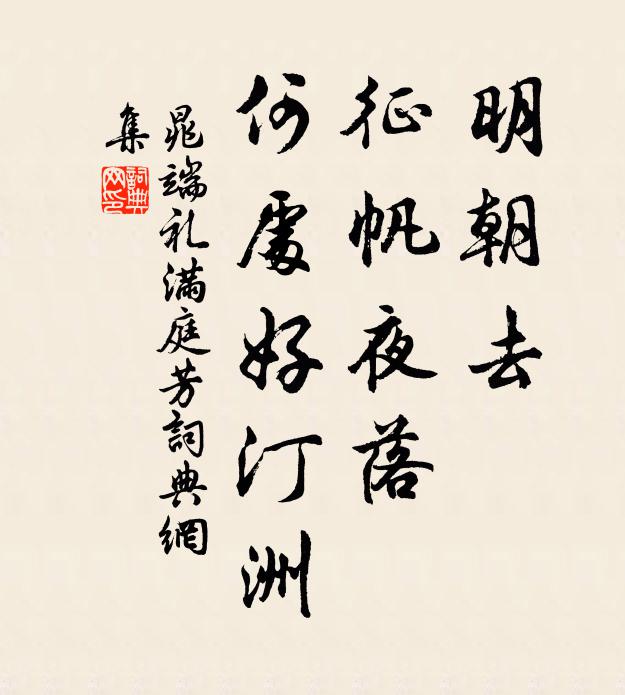 明朝去
征帆夜落
何處好汀洲
晁端礼満庭芳詞典網
集
詞典网印